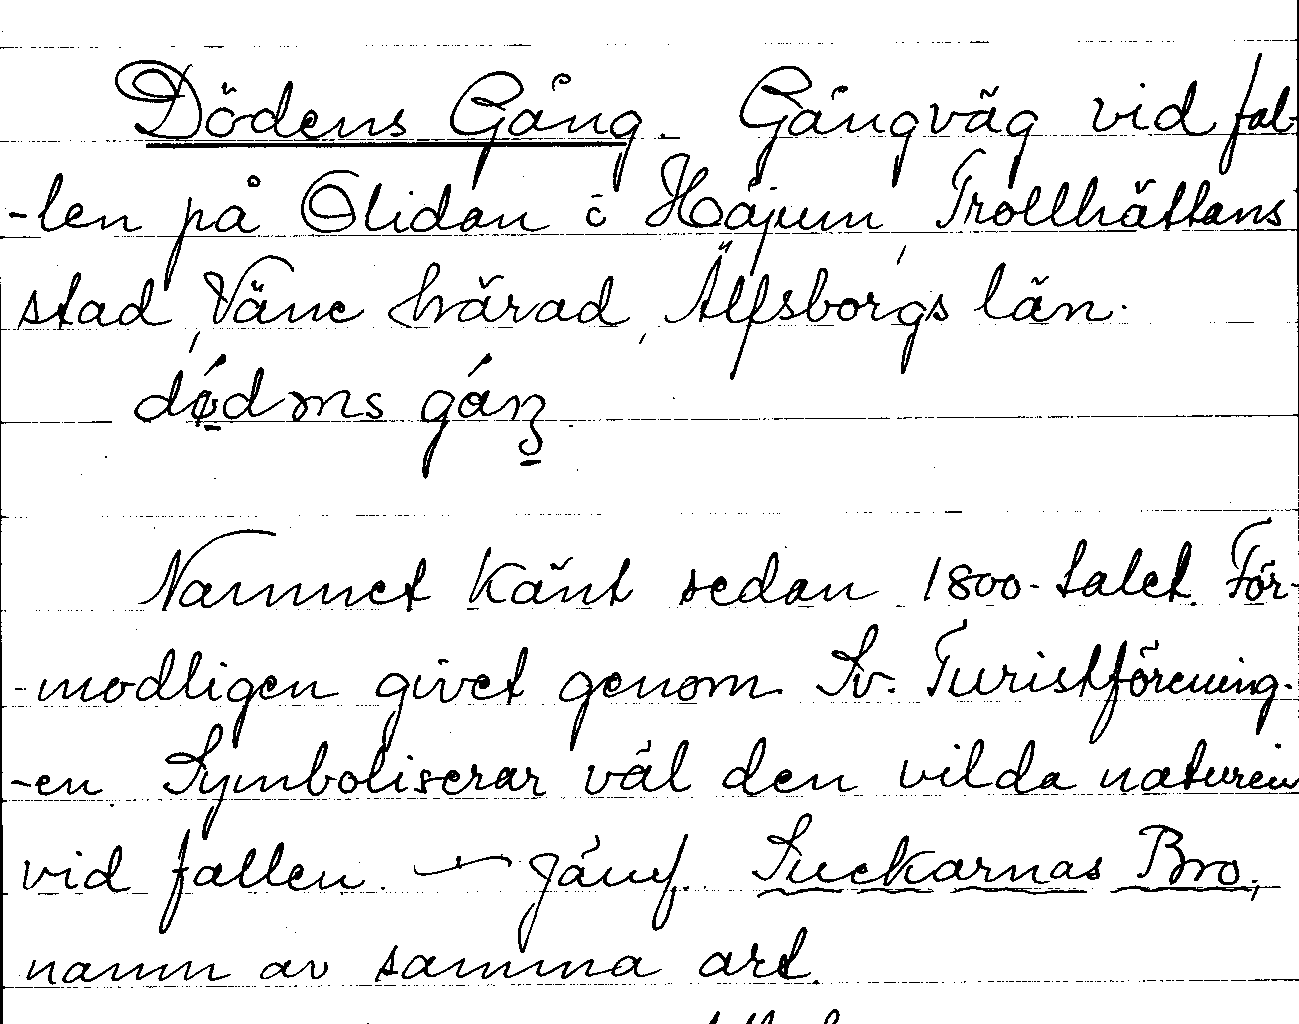 Dödens Gång. Gångväg vid fal-
-len på Olidan i Håjum, Trollhättans
stad, Väne härad, Älfsborgs län.
Namnet känt sedan 1800-talet. För-
-modligen givet genom Sv. Turistförening-
-en. Symboliserar väl den vilda naturen
vid fallen. — Jämf. Suckarnas Bro,
namn av samma art.